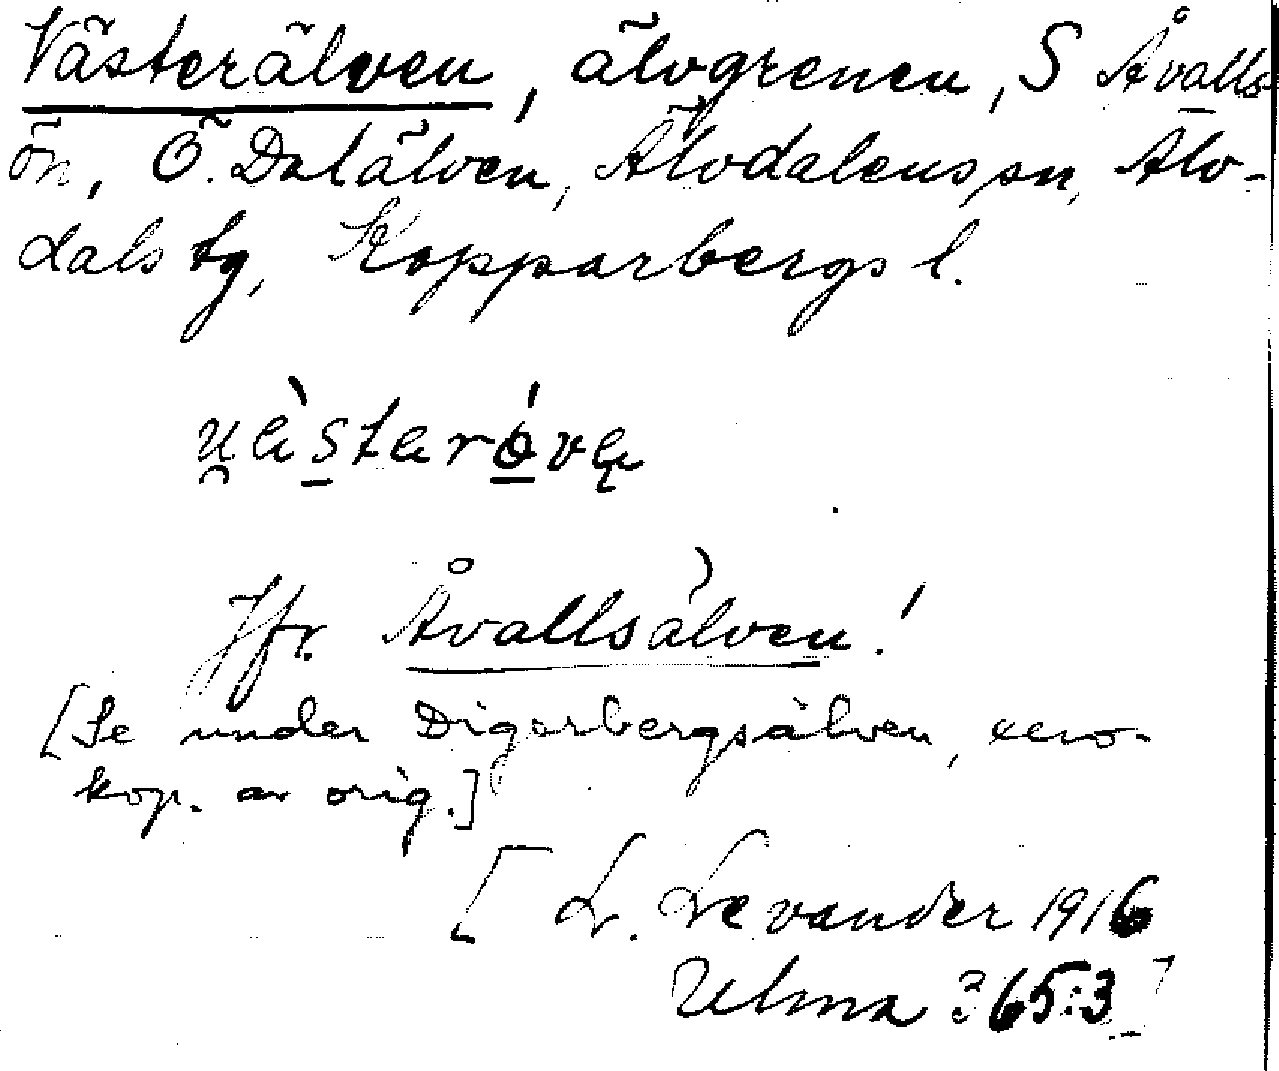 Västerälven, älvgrenen, S Åvalls-
ön, Ö. Dalälven, Älvdalens sn, Älv-
dals tg, Kopparbergs l.
Jfr. Åvallsälven!
[Se under Digerbergsälven, xero-
kop. av orig.]
[L. Levander 1916
Ulma 365:3]